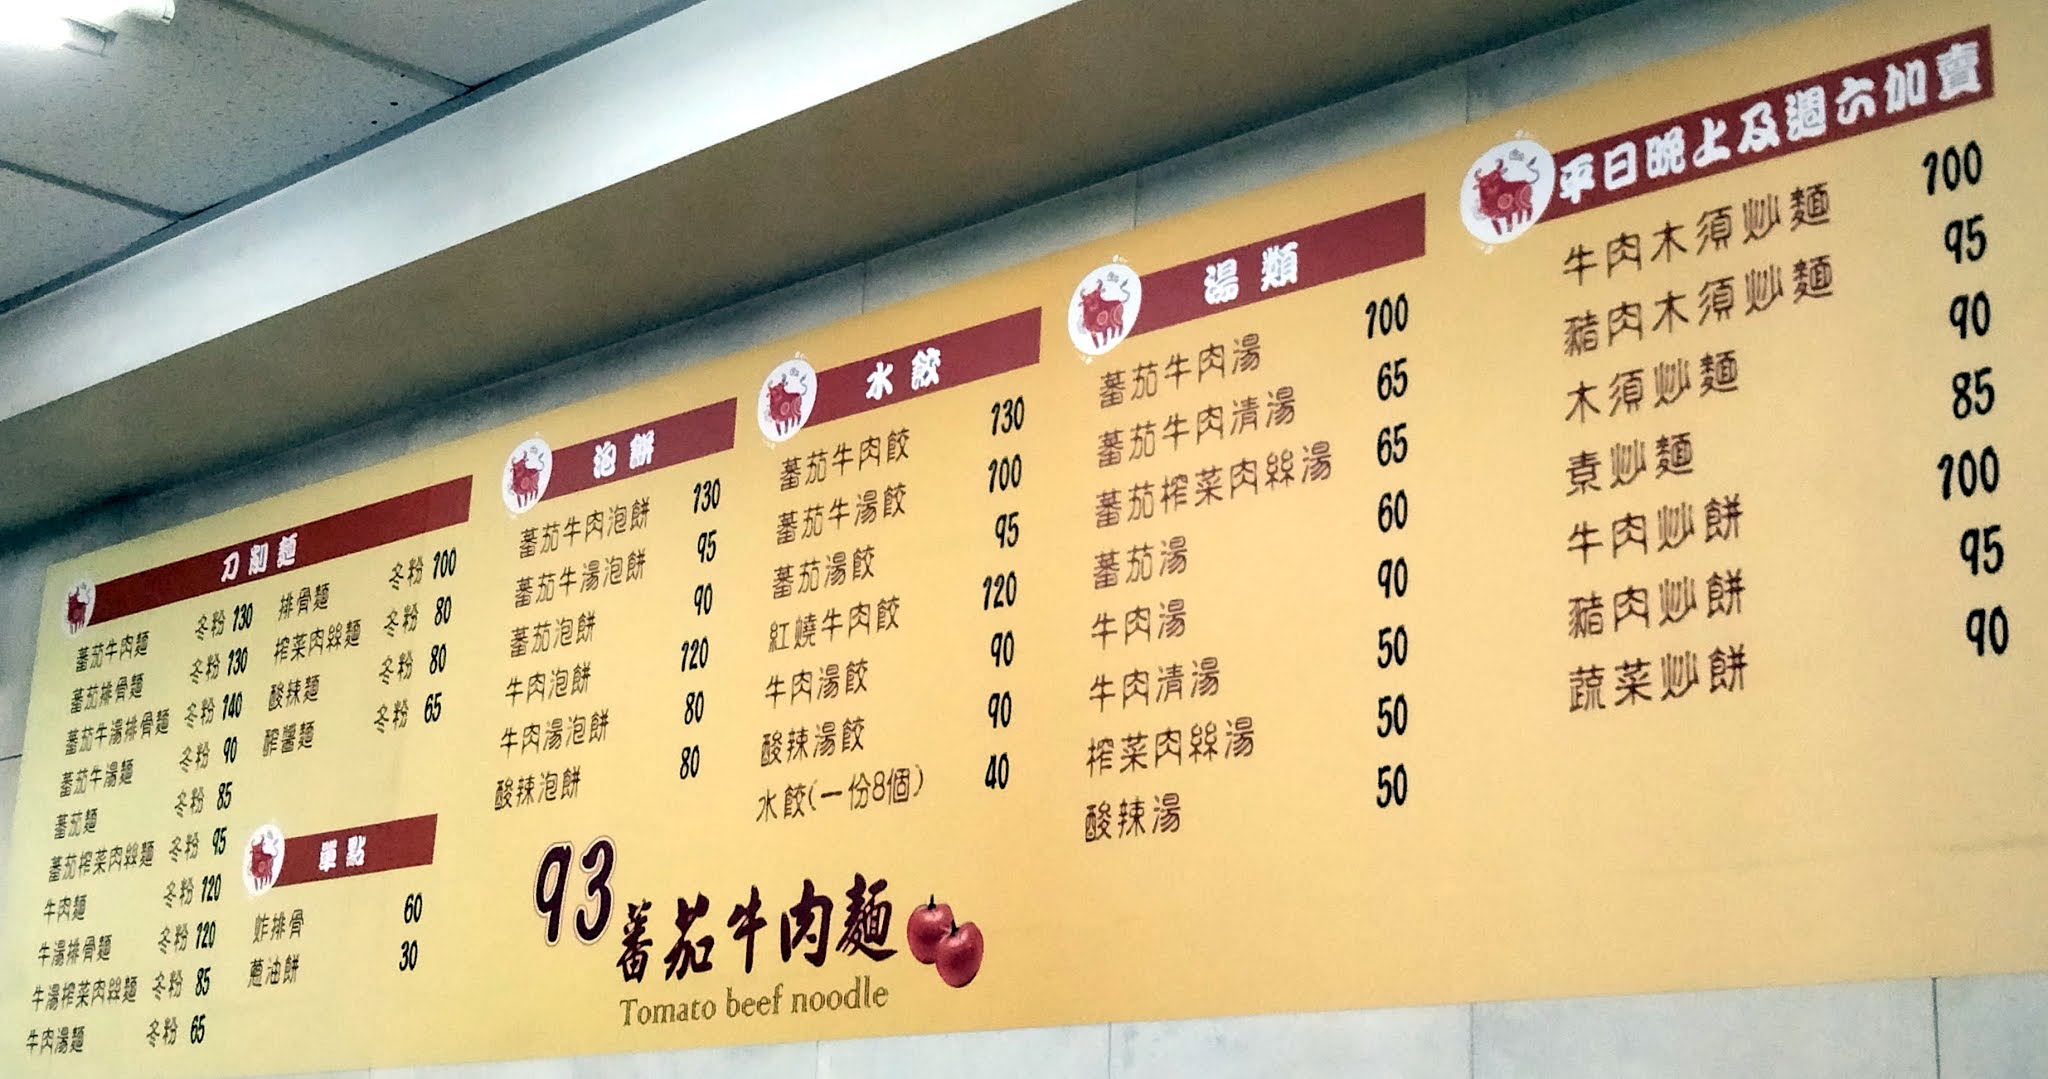 刀削麵
蕃茄牛肉麵 冬粉 130
蕃茄排骨麵 冬粉 130
蕃茄牛湯排骨麵 冬粉 140
蕃茄牛湯麵 冬粉 90
蕃茄麵 冬粉 85
蕃茄榨菜肉絲麵 冬粉 95
牛肉麵 冬粉 120
牛湯排骨麵 冬粉 120
牛湯榨菜肉絲麵 冬粉 85
牛肉湯麵 冬粉 65
排骨麵 冬粉 100
榨菜肉絲麵 冬粉 80
酸辣麵 冬粉 80
醡醬麵 冬粉 65
單點
炸排骨 60
蔥油餅 30
泡餅
蕃茄牛肉泡餅 130
蕃茄牛湯泡餅 95
蕃茄泡餅 90
牛肉泡餅 120
牛肉湯泡餅 80
酸辣泡餅 80
水餃
蕃茄牛肉餃 130
蕃茄牛湯餃 100
蕃茄湯餃 95
紅燒牛肉餃 120
牛肉湯餃 90
酸辣湯餃 90
水餃(一份8個) 40
湯類
蕃茄牛肉湯 100
蕃茄牛肉清湯 65
蕃茄榨菜肉絲湯 65
蕃茄湯 60
牛肉湯 90
牛肉清湯 50
榨菜肉絲湯 50
酸辣湯 50
平日晚上及週六加賣
牛肉木須炒麵 100
豬肉木須炒麵 95
木須炒麵 90
素炒麵 85
牛肉炒餅 100
豬肉炒餅 95
蔬菜炒餅 90
93蕃茄牛肉麵
Tomato beef noodle